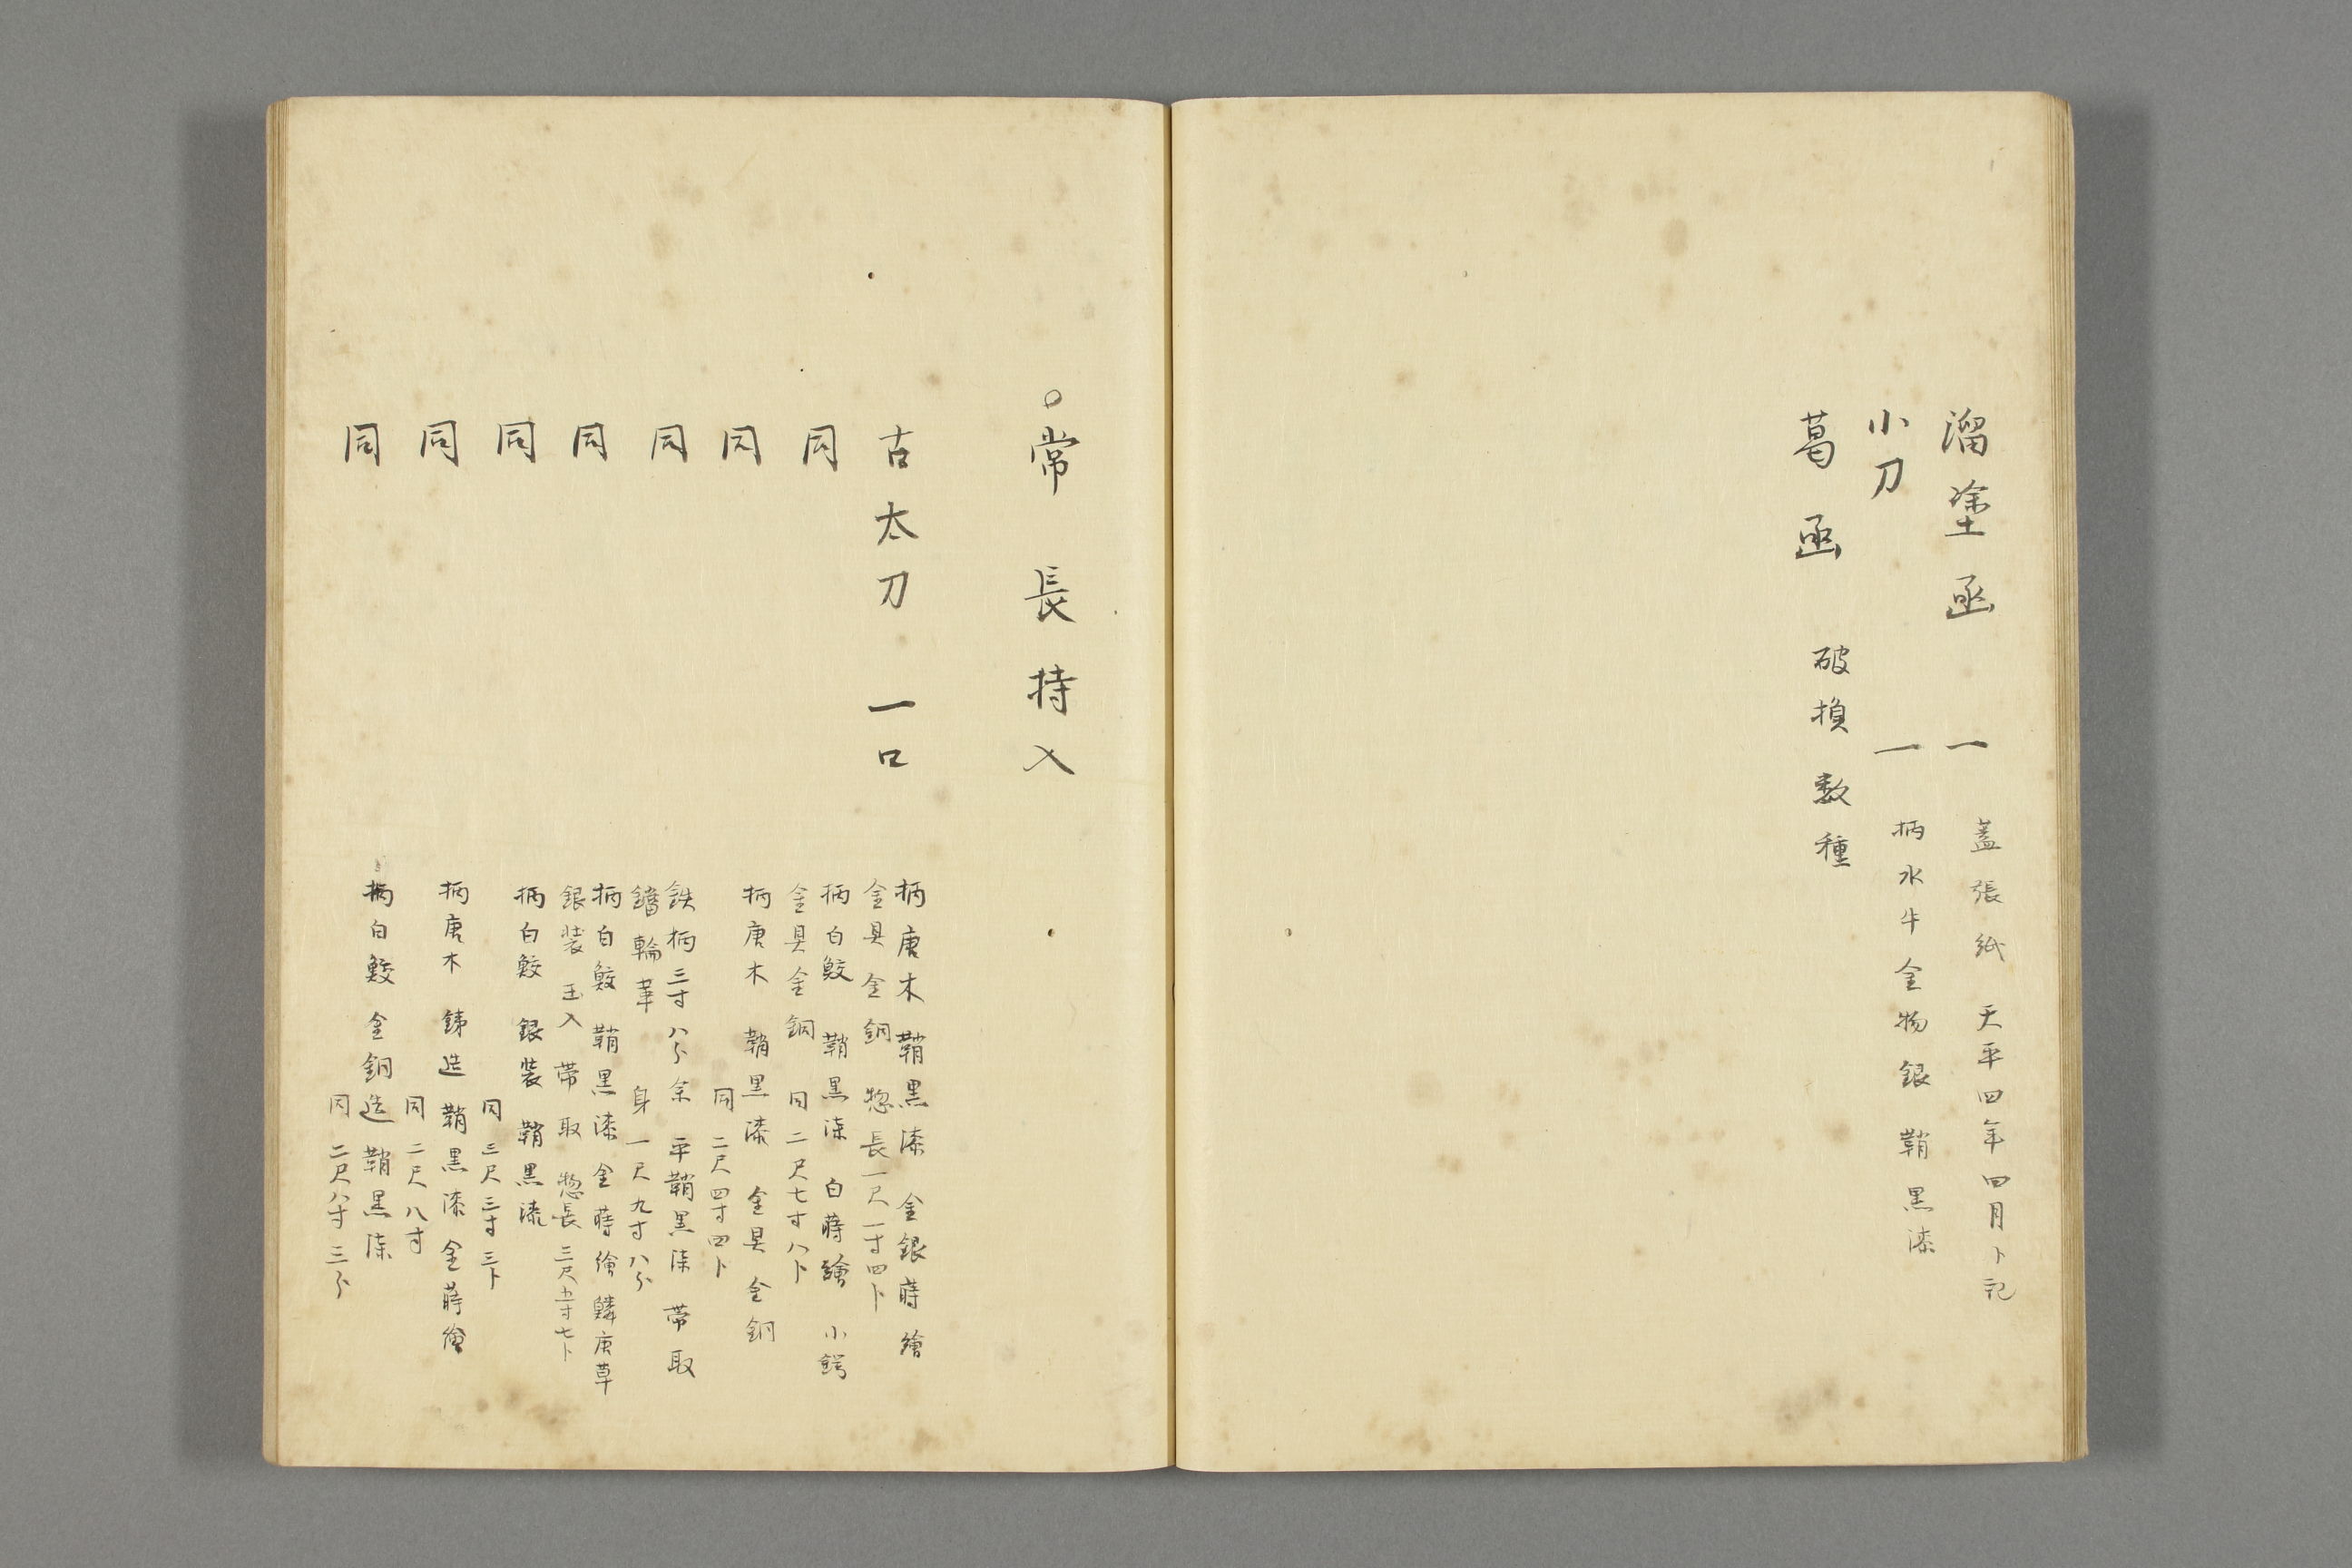 溜塗函 一 蓋張紙 天平四年四月卜記
小刀 一 柄水牛金物銀 鞘黒漆
葛函 破損数種
○常長持入
古太刀 一口 柄唐木 鞘黒漆 金銀蒔繪
金具金銅 惣長一尺一寸四卜
同 柄白鮫 鞘黒漆 白蒔繪 小鍔
金具金銅 同 二尺七寸八卜
同 柄唐木 鞘黒漆 金具金銅
同 二尺四寸四卜
同 鉄柄三寸八分余 平鞘黒漆 帯取
鐺輪革 身一尺九寸八分
同 柄白鮫 鞘黒漆 金蒔繪 鱗唐草
銀装 玉入 帯取 惣長 三尺五寸七卜
同 柄白鮫 銀装 鞘黒漆
同 三尺三寸三卜
同 柄唐木 銕造 鞘黒漆 金蒔繪
同 二尺八寸
同 柄白鮫 金銅造 鞘黒漆
同 二尺八寸三分